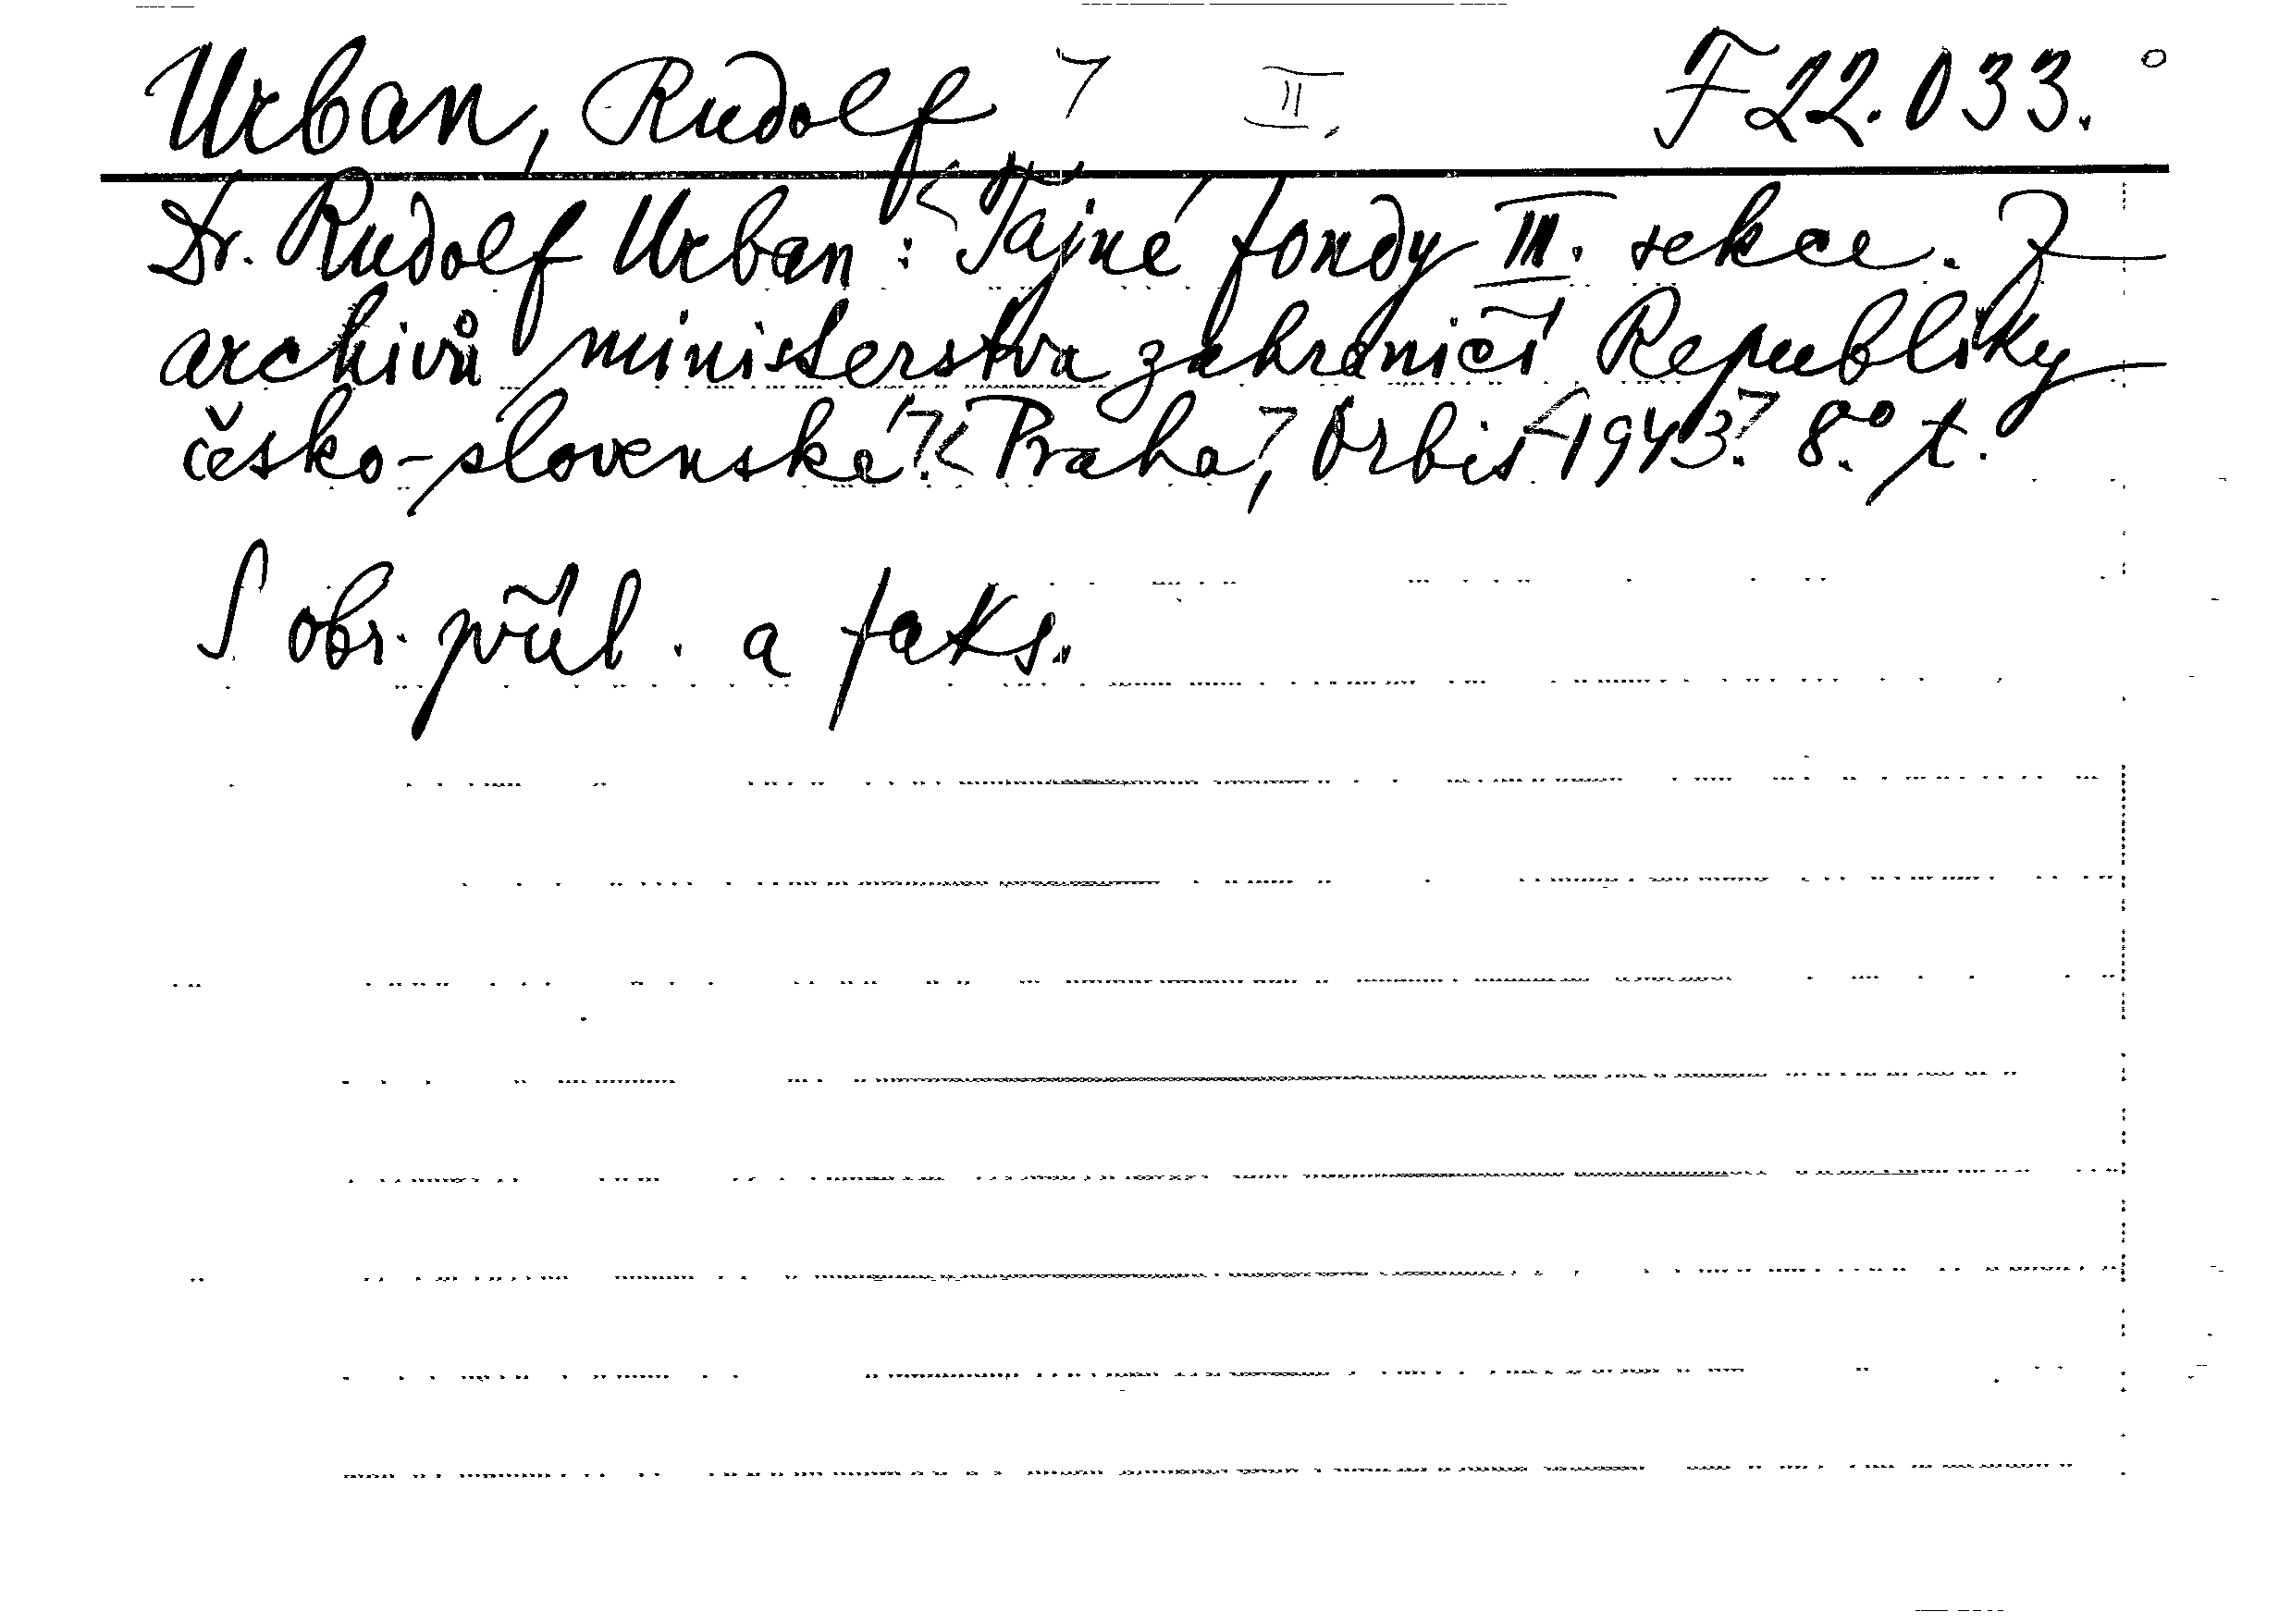 Urban, Rudolf II. F 22.033.
Dr. Rudolf Urban: Tajné fondy III. sekce. Z
archivů ministerstva zahraničí Republiky
česko-slovenské. Praha, Orbis 1943. 8° t.
S obr. příl. a faks.